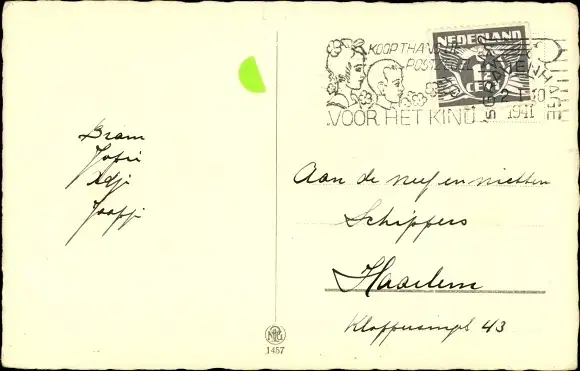 Bram
Jopie
Adji
Jaapji
KOOPT HA
POSTZ
VOOR HET KIND
NEDERLAND
CENT
'S GRAVENHAGE
1941
Aan de neef en nichten
Schippers
Haarlem
43
1457